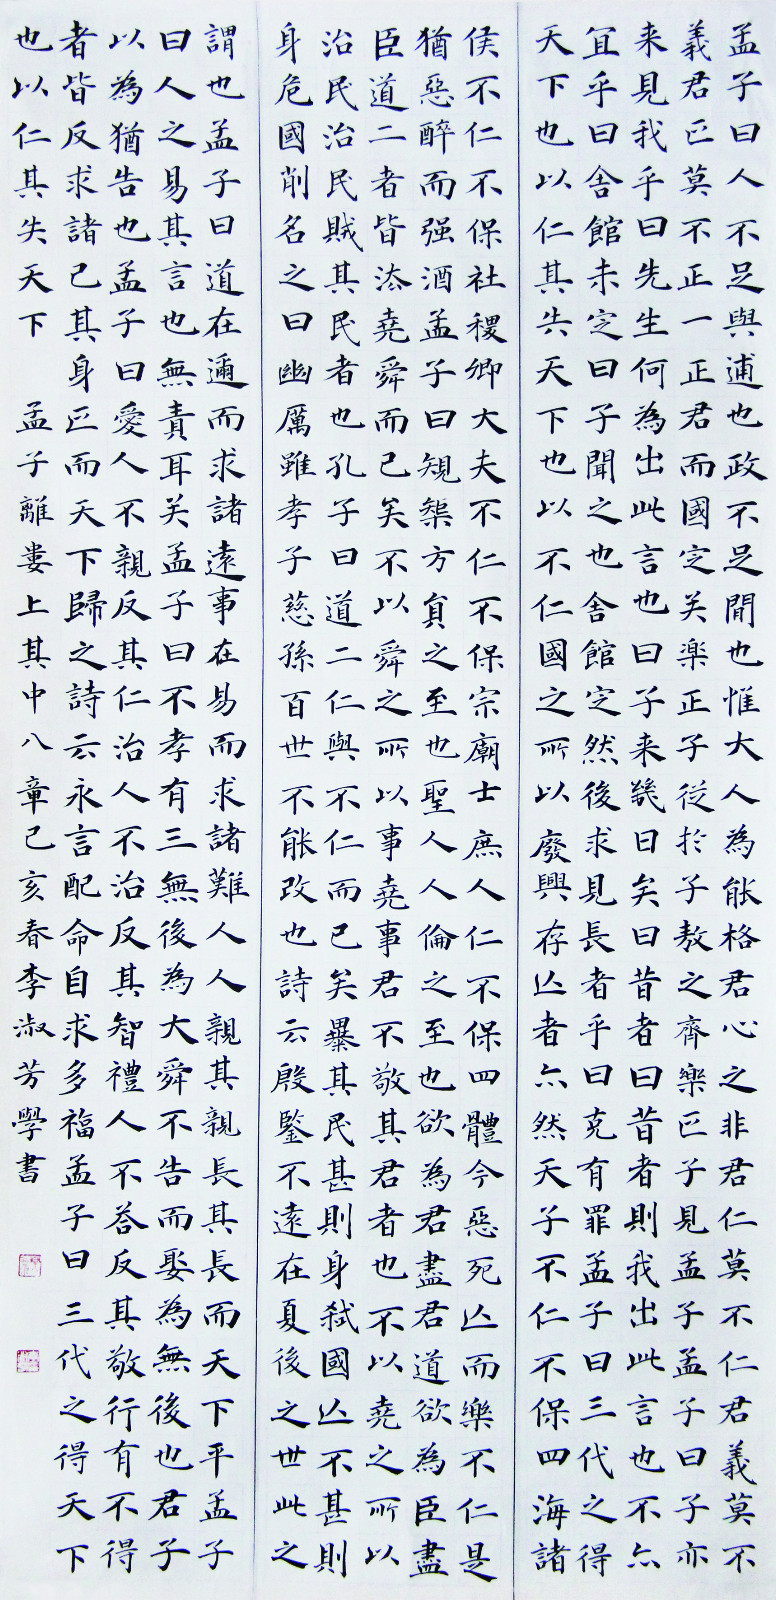 孟子曰人不足與適也政不足間也惟大人為能格君心之非君仁莫不仁君義莫不
義君正莫不正一正君而國定矣樂正子從於子敖之齊樂正子見孟子孟子曰子亦
来見我乎曰先生何為出此言也曰子来幾日矣曰昔者曰昔者則我出此言也不亦
宜乎曰舍館未定曰子聞之也舍館定然後求見長者乎曰克有罪孟子曰三代之得
天下也以仁其失天下也以不仁國之所以廢興存亡者亦然天子不仁不保四海諸
侯不仁不保社稷卿大夫不仁不保宗廟士庶人仁不保四體今惡死亡而樂不仁是
猶惡醉而强酒孟子曰規榘方員之至也聖人人倫之至也欲為君盡君道欲為臣盡
臣道二者皆法堯舜而已矣不以舜之所以事堯事君不敬其君者也不以堯之所以
治民治民賊其民者也孔子曰道二仁與不仁而已矣暴其民甚則身弒國亡不甚則
身危國削名之曰幽厲雖孝子慈孫百世不能改也詩云殷鑒不遠在夏後之世此之
謂也孟子曰道在邇而求諸遠事在易而求諸難人人親其親長其長而天下平孟子
曰人之易其言也無責耳矣孟子曰不孝有三無後為大舜不告而娶為無後也君子
以為猶告也孟子曰愛人不親反其仁治人不治反其智禮人不答反其敬行有不得
者皆反求諸己其身正而天下歸之詩云永言配命自求多福孟子曰三代之得天下
也以仁其失天下 孟子離婁上其中八章己亥春李淑芳學書